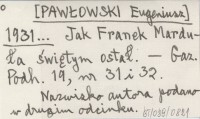 [PAWŁOWSKI Eugeniusz]
1931... Jak Franek Mardu-
ła świętym ostał. — Gaz.
Podh. 19, nr 31 i 32.
Nazwisko autora podano
w drugim odcinku.